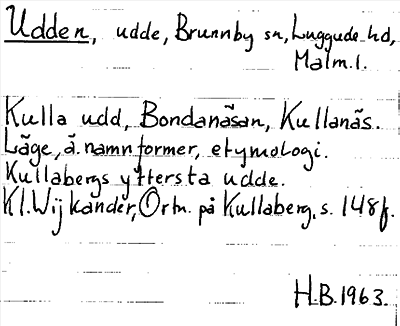 Udden, udde, Brunnby sn, Luggude hd,
Malm.l.
Kulla udd, Bondanäsan, Kullanäs.
Läge, ä. namnformer, etymologi.
Kullabergs yttersta udde.
Kl. Wijkander, Ortn. på Kullaberg, s. 148f.
H.B. 1963.